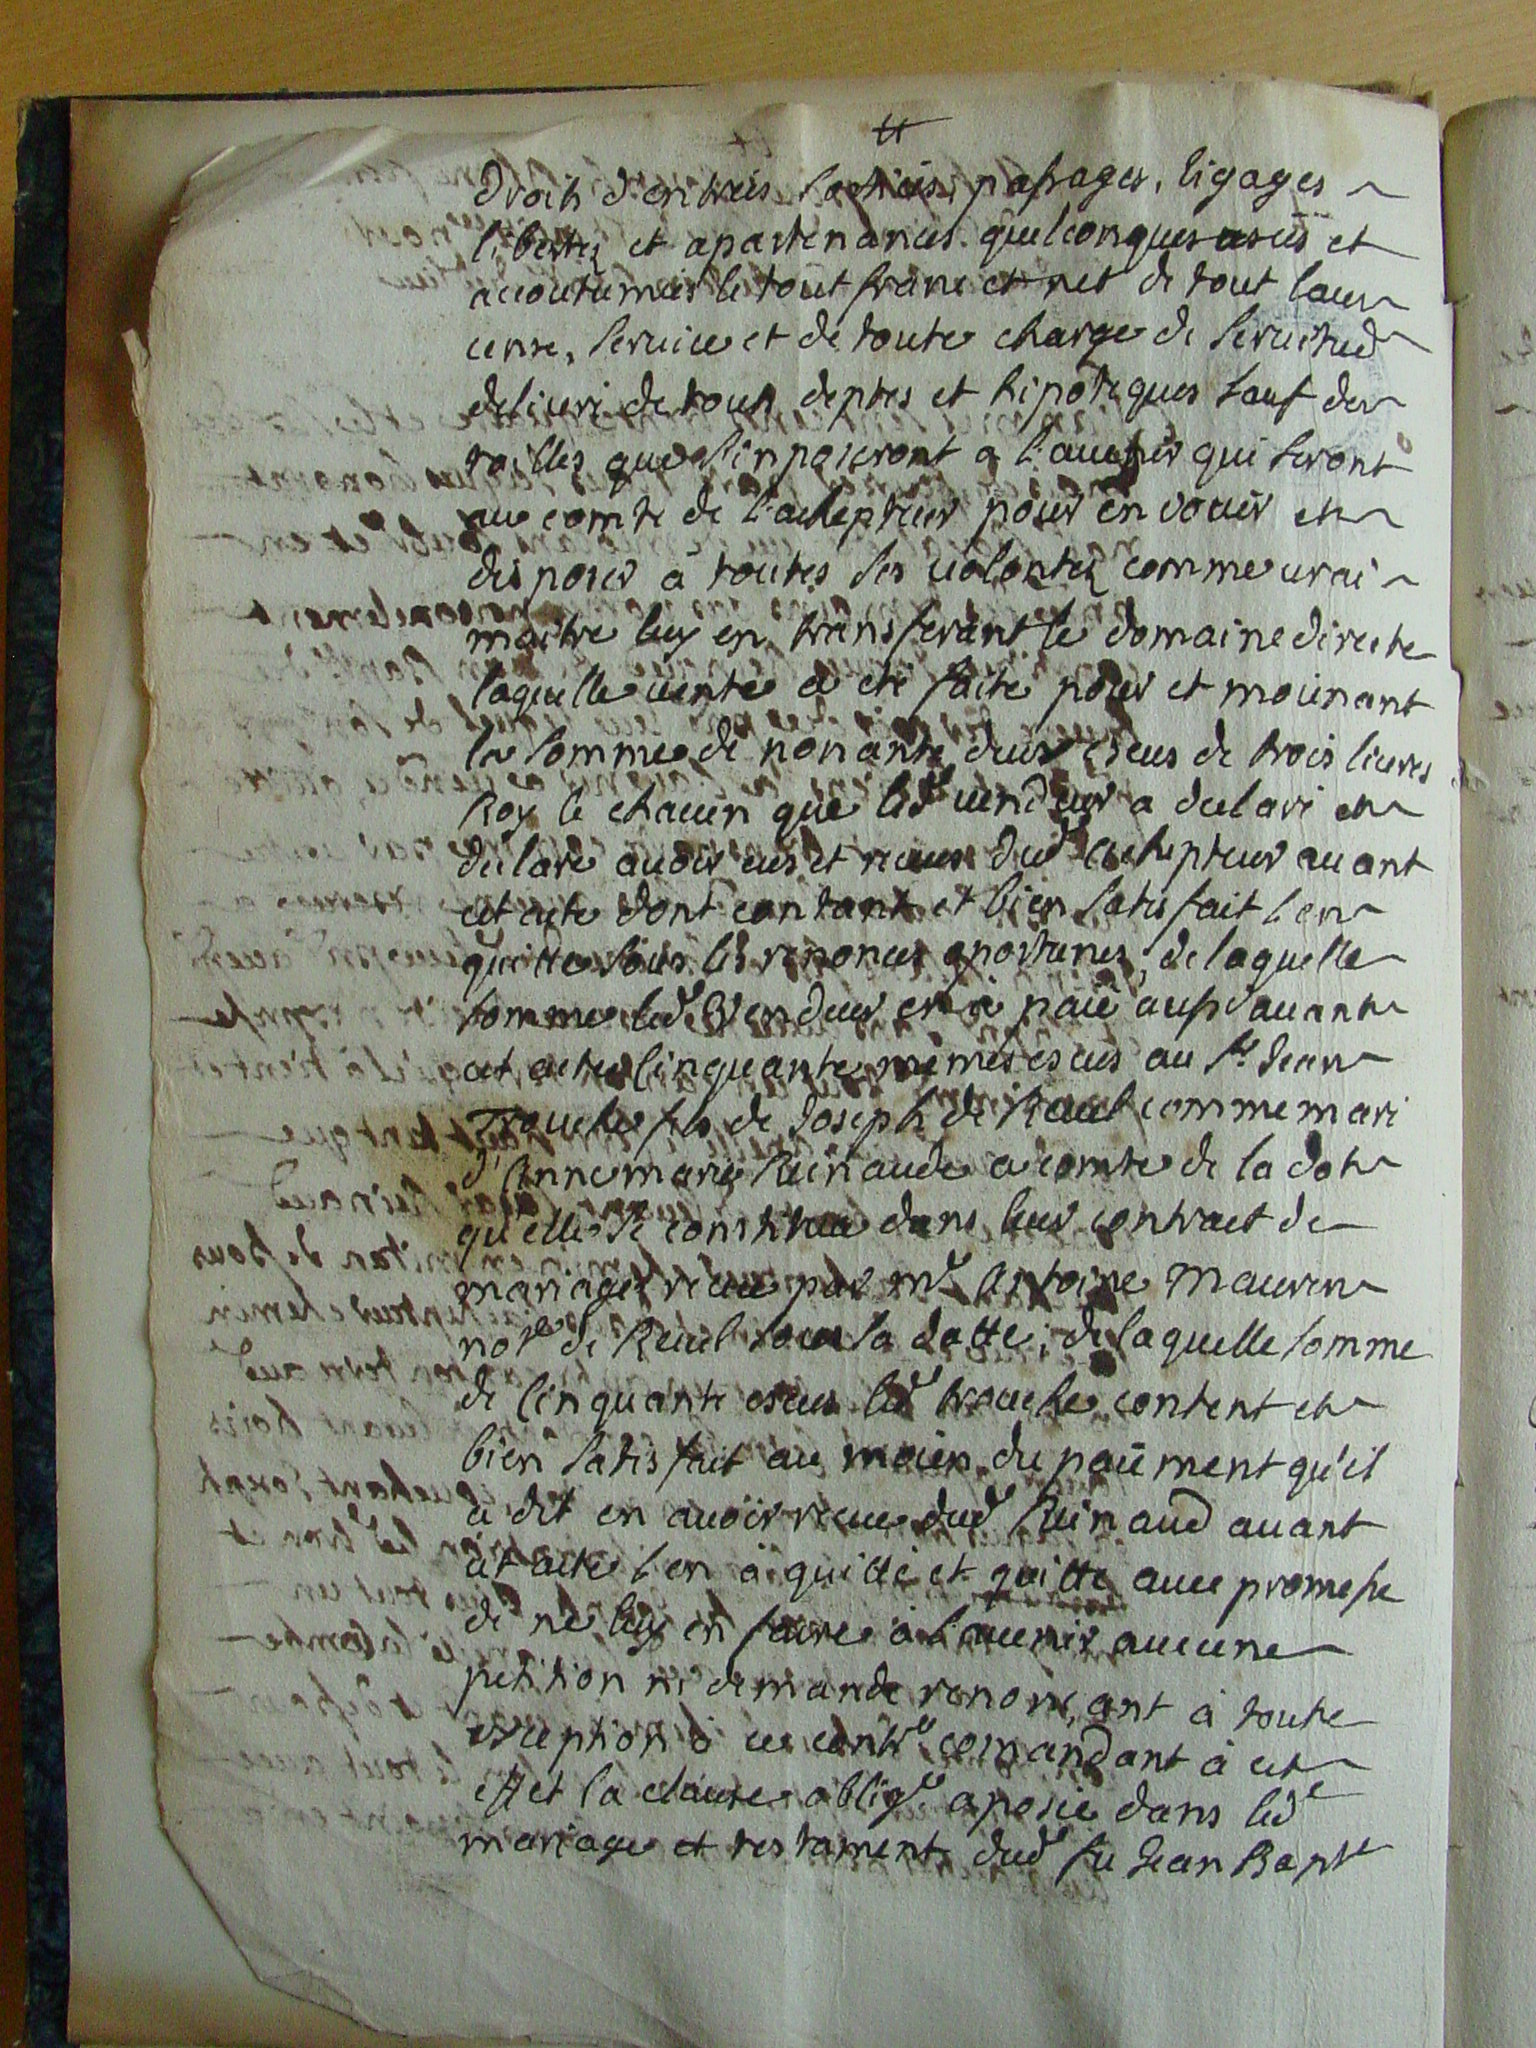 droits d'entrées sorties, passages, ligages
libertez et apartenances quelconques usés et
accoutumées le tout franc et net de tout laus
cense, service et de toute charge de servitud
delivré de tous deptes et hipoteques sauf des
tailles que s'inposeront a l'auenir qui seront
au comte de l'achepteur pour en jouir et
disposer à toutes ses uolontez comme urai
maitre luy en transferant le domaine directe
laquelle uente a été faite pour et moienant
la somme de nonante deux escus de trois liures
Roy le chacun que led uendeur a declaré et
declare auoir eus et receus dud achepteur auant
cet acte dont contant et bien satisfait l'en
quitte sous les renonces oportunes, de laquelle
somme led vendeur en a paié aup'auant
cet acte cinquante mémes escus au Sr Jean
Trouche fils de Joseph de Reuel comme mari
d'Anne marie Reinaude a comte de la dot
qu'elle se constitua dans leur contract de
mariage receu par me Antoine Mauren
nore de Reuel sous sa datte; de laquelle somme
de cinquante escus led trouche content et
bien satisfait au moien du paiiment qu'il
à dit en auoir receu dud Reinaud auant
cet acte l'en à quitté et quitte auec promesse
de ne luy en faire à l'auenir aucune
petition ni demande renonceant à toute
exception à ce contre comandant à cet
effet la clause oblige aposée dans led
mariage et testament dud fu Jean Bapte